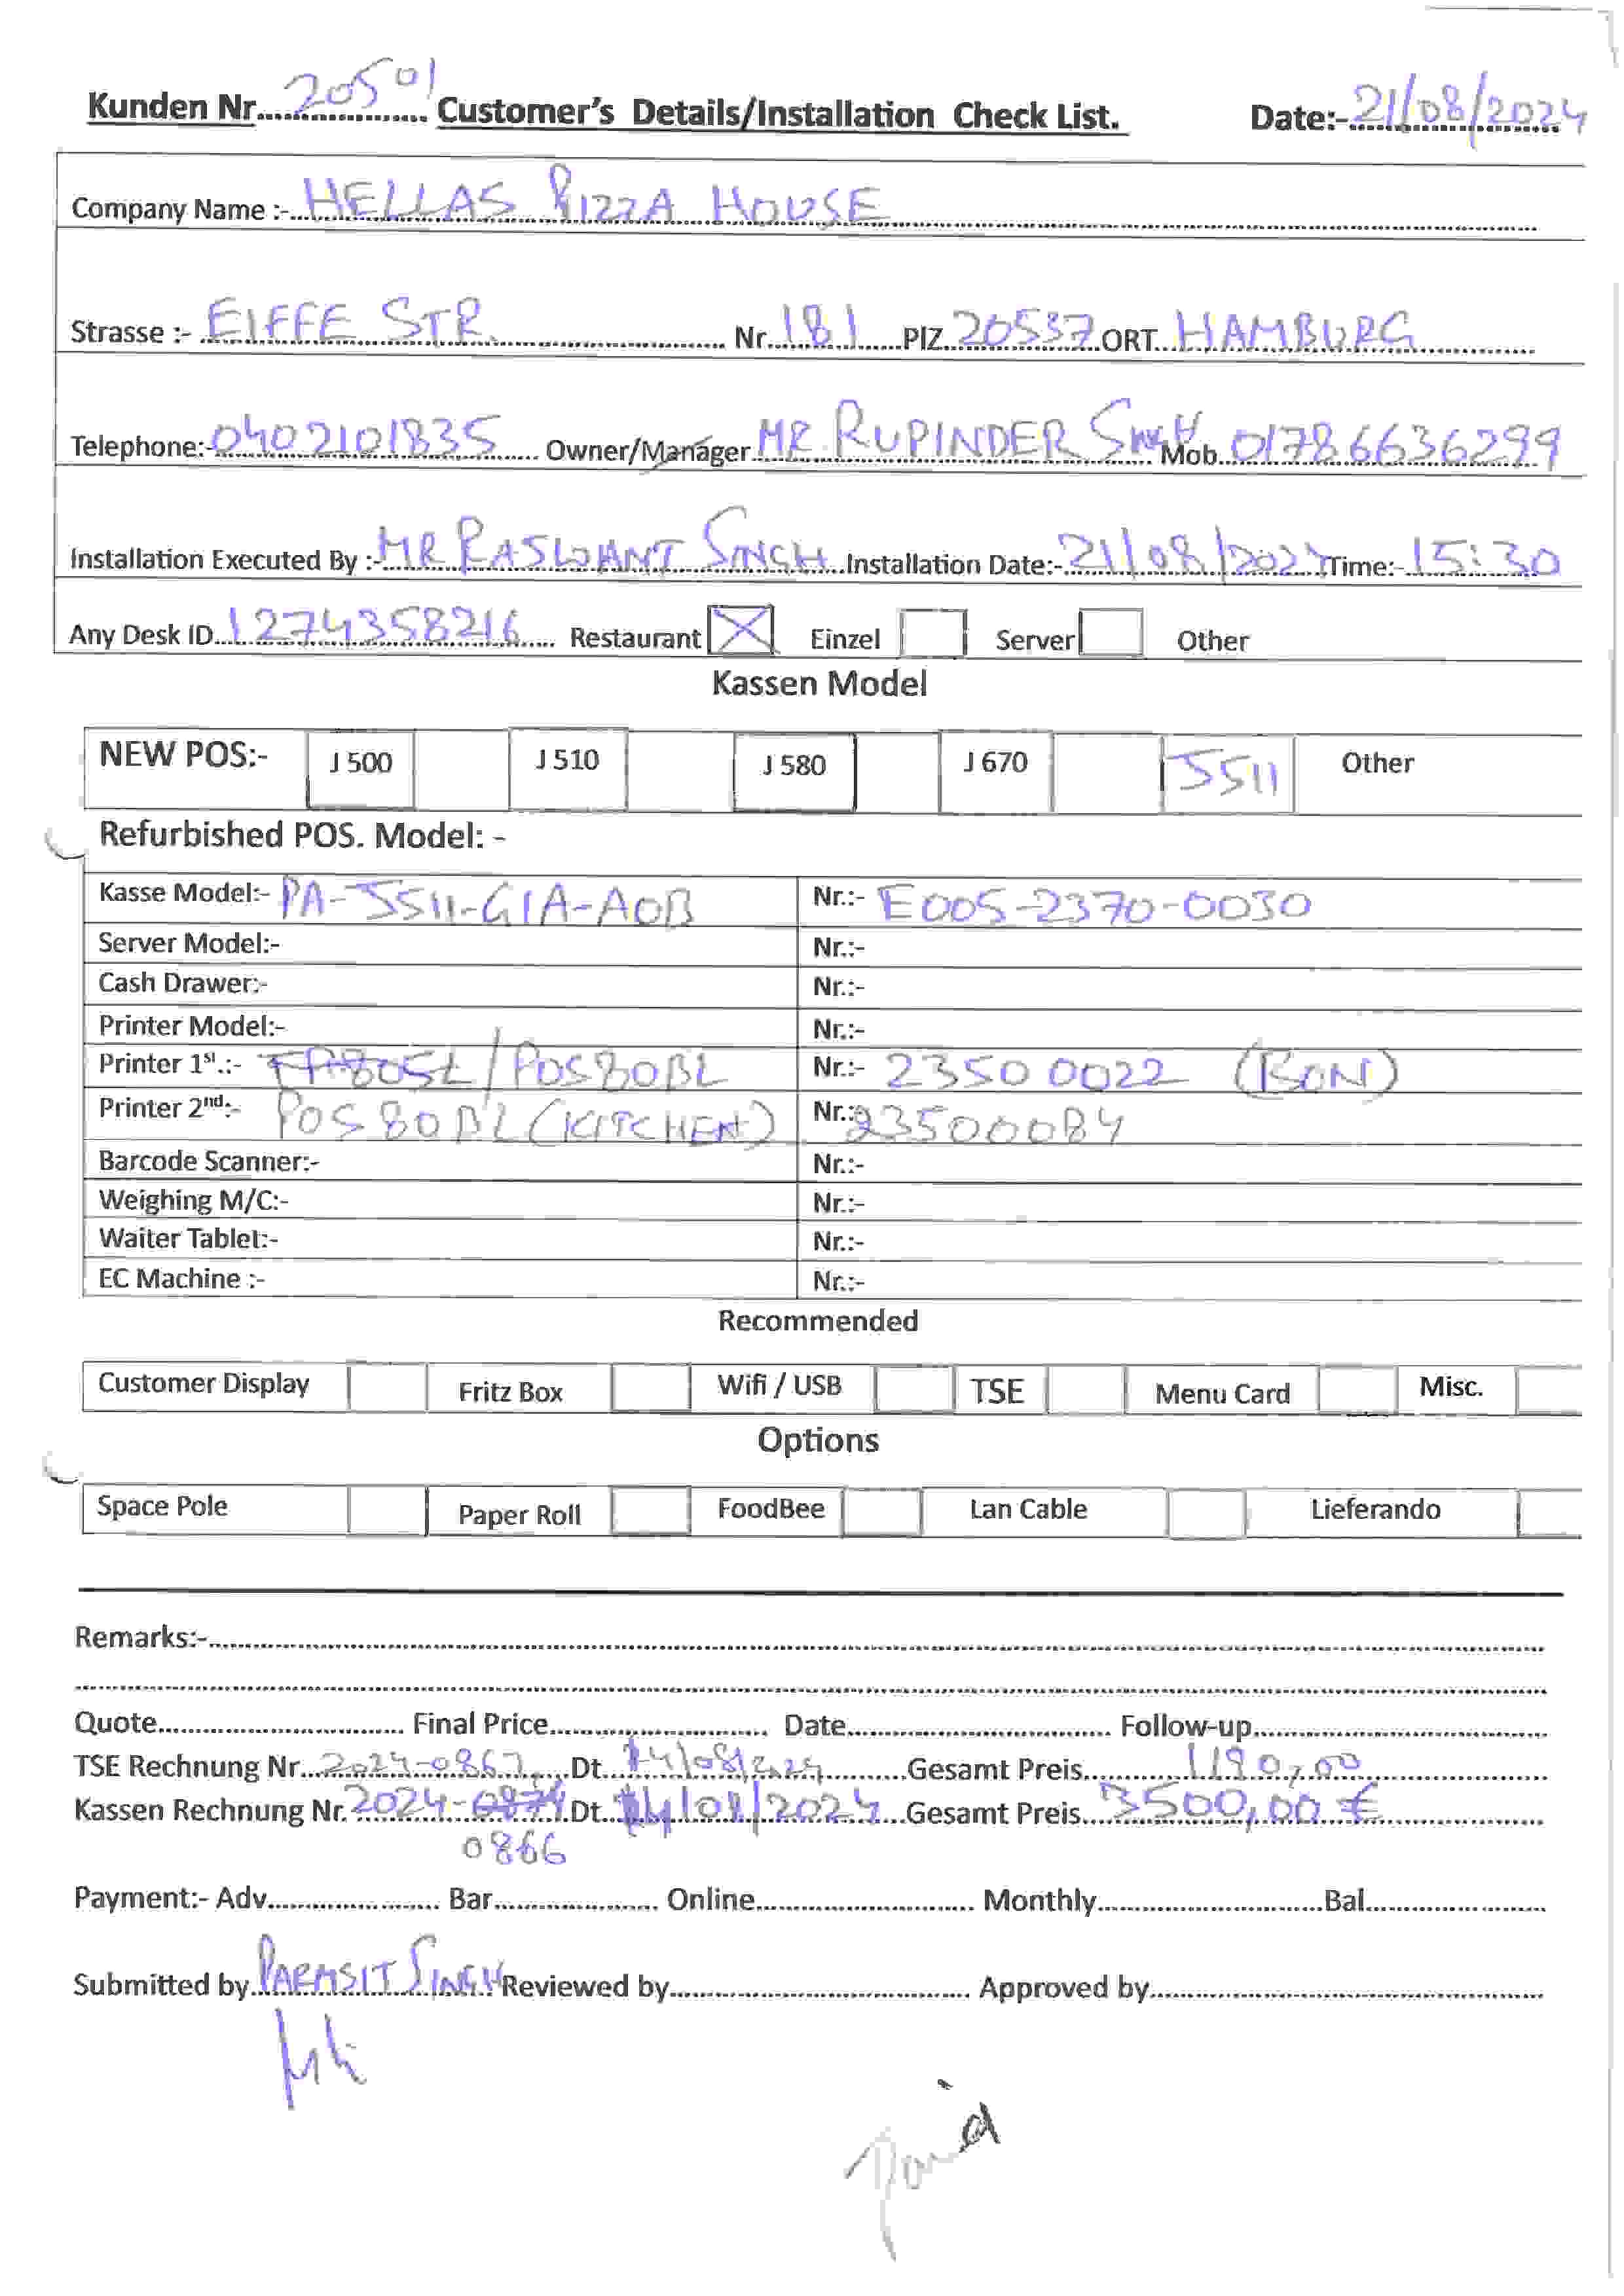 Kunden Nr. 20501 Customer's Details/Installation Check List. Date:- 21/08/2024
Company Name :- HELLAS PIZZA HOUSE
Strasse :- EIFFE STR. Nr. 181 PlZ. 20537 ORT. HAMBURG
Telephone:- 0402101835 Owner/Manager MR RUPINDER SINGH Mob. 01786636299
Installation Executed By :- MR RASWANT SINGH Installation Date:- 21/08/2024 Time:- 15:30
Any Desk ID. 1274358216 Restaurant X Einzel Server Other
Kassen Model
NEW POS:- J 500 J 510 J 580 J 670 J511 Other
Refurbished POS. Model: -
Kasse Model:- PA-J511-G1A-A0B Nr.:- E005-2370-0030
Server Model:- Nr.:-
Cash Drawer:- Nr.:-
Printer Model:- Nr.:-
Printer 1st.:- / POS80BL Nr.:- 23500022 (BON)
Printer 2nd:- POS80BL (KITCHEN) Nr.: 23500084
Barcode Scanner:- Nr.:-
Weighing M/C:- Nr.:-
Waiter Tablet:- Nr.:-
EC Machine :- Nr.:-
Recommended
Customer Display Fritz Box Wifi / USB TSE Menu Card Misc.
Options
Space Pole Paper Roll FoodBee Lan Cable Lieferando
Remarks:-
Quote Final Price Date Follow-up
TSE Rechnung Nr. 2024-0867 Dt. 14/08/2024 Gesamt Preis 1190,00
Kassen Rechnung Nr. 2024- Dt. 14/08/2024 Gesamt Preis. 3500,00 €
0866
Payment:- Adv. Bar. Online. Monthly. Bal.
Submitted by PARMJIT SINGH Reviewed by Approved by